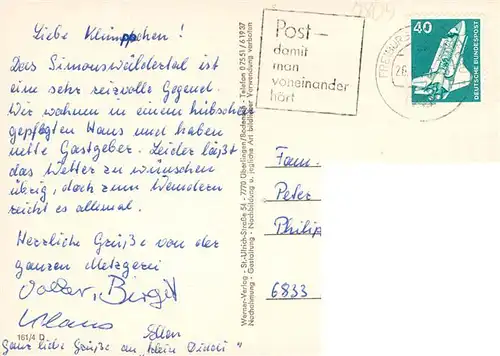 Liebe Klimppchen!
Das Simonswäldertal ist
eine sehr reizvolle Gegend.
Wir wohnen in einem hübschen
gepflegten Haus und haben
nette Gastgeber. Leider läßt
das Wetter zu wünschen
übrig, doch zum Wandern
reicht es allemal.
Herzliche Grüße von der
ganzen Metzgerei
Volker, Birgit
Klaus
Ellen
Ganz liebe Grüße an "klein Dindi"
161/4 D
Werner-Verlag · St.-Ulrich-Straße 54 · 7770 Überlingen/Bodensee · Telefon 07551/61937
Nachahmung - Gestaltung - Nachbildung u. jegliche Art bildlicher Verwendung verboten
Post -
damit
man
voneinander
hört
40
DEUTSCHE BUNDESPOST
Fam.
Peter
Philip
6833